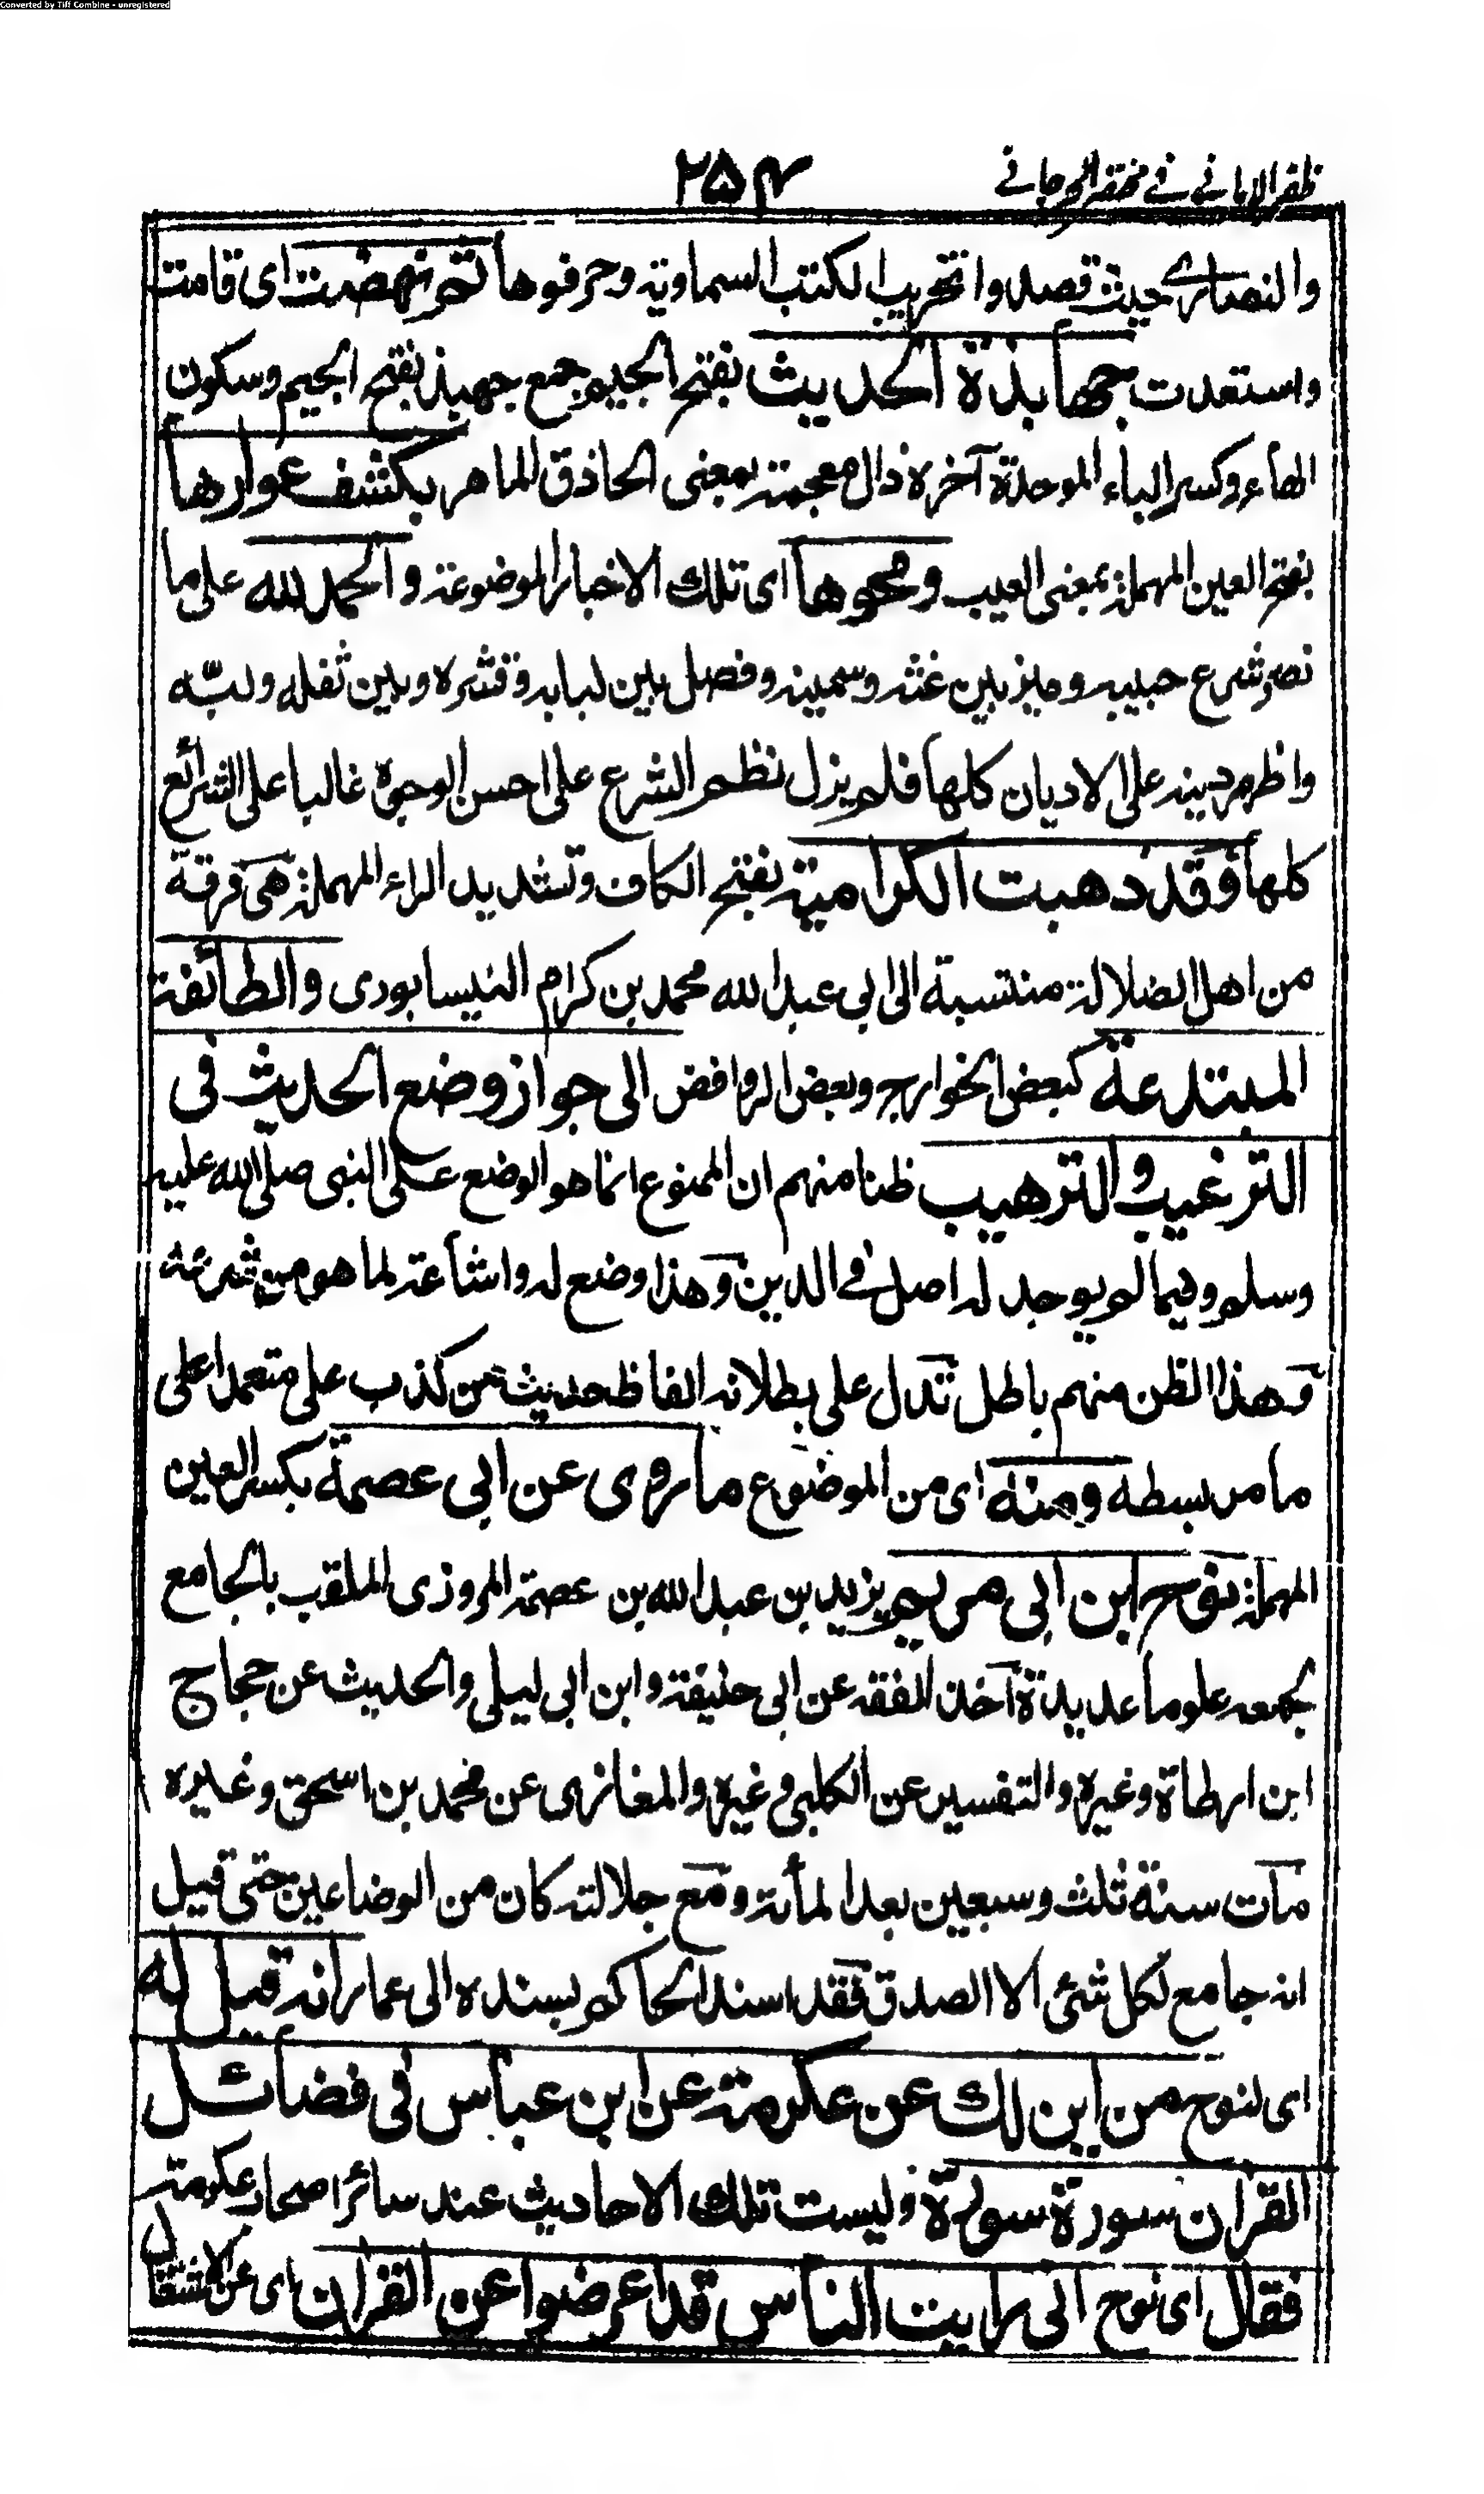 Converted by Tiff Combine - unregistered
ظفر الامانے فے مختصر الجرجانے
۲۵۴
والنصارے حیث قصدوا تخریب الکتب السماویة وحرفوها ثم نهضت ای قامت
واستعدت جهابذة الحدیث بفتح الجیم جمع جهبذ بفتح الجیم وسکون
الهاء وکسر الباء الموحدة آخره ذال معجمة بمعنی الحاذق الماهر بکشف عوارها
بفتح العین المهملة بمعنی العیب ومحوها ای تلک الاخبار الموضوعة والحمد لله علی ما
نصر شرع حبیبه ومیز بین غثه وسمینه وفصل بین لبابه وقشره وبین ثفله ولبّه
واظهر دینه علی الادیان کلها فلم یزل نظم الشرع علی احسن الوجوة غالبا علی الشرائع
کلها وقد ذهبت الکرامیة بفتح الکاف وتشدید الراء المهملة هی فرقة
من اهل الضلالة منتسبة الی ابی عبد الله محمد بن کرام النیسابوری والطائفة
المبتدعة کبعض الخوارج وبعض الروافض الی جواز وضع الحدیث فی
الترغیب والترهیب ظنا منهم ان الممنوع انما هو الوضع علی النبی صلی الله علیه
وسلم وفیما لم یوجد له اصل فے الدین وهذا وضع له واشاعة لما هو من شرعه
وهذا الظن منهم باطل تدل علی بطلانه الفاظ حدیث من کذب علی متعمدا علی
ما مر بسطه ومنه ای من الموضوع ما روی عن ابی عصمة بکسر العین
المهملة نوح ابن ابی مریم یزید بن عبد الله بن عصمة المروزی الملقب بالجامع
لجمعه علوما عدیدة آخذ الفقه عن ابی حنیفة وابن ابی لیلی والحدیث عن حجاج
ابن ارطاة وغیره والتفسیر عن الکلبی وغیره والمغازی عن محمد بن اسحق وغیره
مات سنة ثلث وسبعین بعد المأة ومع جلالته کان من الوضاعین حتی قیل
انه جامع لکل شئ الا الصدق فقد اسند الحاکم بسنده الی عمار انه قیل له
ای لنوح من این لک عن عکرمة عن ابن عباس فی فضائل
القران سورة سورة ولیست تلک الاحادیث عند سائر اصحاب عکرمة
فقال ای نوح انی رایت الناس قد اعرضوا عن القران ای عن الاشتغال